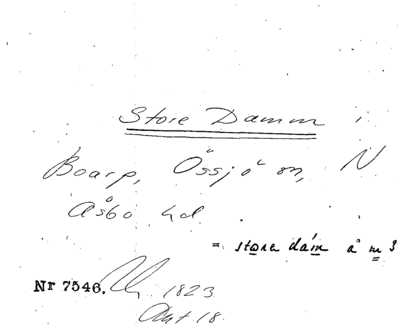 Store Damm i
Boarp, Össjö sn, N
Åsbo hd.
= store dám å m 3
Nr 7546. 1823
Akt 18